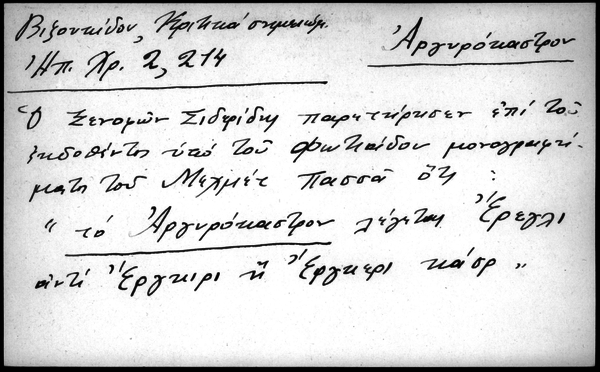 Βιζουκίδου, Κριτικά σημειώμ.
Ἠπ. Χρ. 2, 214
Ἀργυρόκαστρον
Ὁ Ξενοφῶν Σιδερίδης παρετήρησεν ἐπί τοῦ
ἐκδοθέντος ὑπό τοῦ Φωκαΐδου μονογραφή-
ματος τοῦ Μεχμέτ Πασσᾶ ὅτι :
" τό Ἀργυρόκαστρον λέγεται Ἐρεγλι
ἀντί Ἐργκιρι ἤ Ἐργκερι κάσρ "